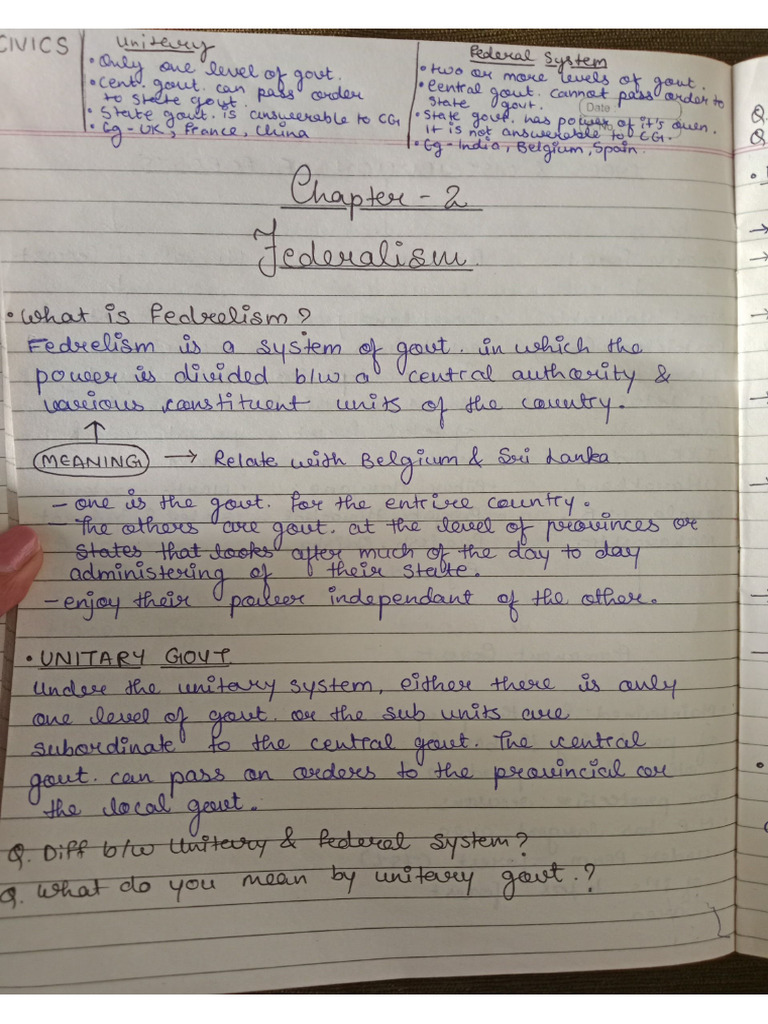 CIVICS
Unitary
• Only one level of govt.
• Cent. govt. can pass order
to state govt.
• State govt. is answerable to CG
• Eg - UK, France, China
Federal System
• two or more levels of govt.
• Central govt. cannot pass order to
state govt.
Date
• State govt. has power of it's own.
It is not answerable to CG.
• Eg - India, Belgium, Spain.
Chapter - 2
Federalism
• What is Fedrelism?
Fedrelism is a system of govt. in which the
power is divided b/w a central authority &
various constituent units of the country.
MEANING → Relate with Belgium & Sri Lanka
- one is the govt. for the entire country.
- The others are govt. at the level of provinces or
states that looks after much of the day to day
administering of their state.
- enjoy their power independant of the other.
• UNITARY GOVT
Under the unitary system, either there is only
one level of govt. or the sub units are
subordinate to the central govt. The central
govt. can pass on orders to the provincial or
the local govt.
Q. Diff b/w Unitary & federal system?
Q. What do you mean by unitary govt.?
Q.
Q.